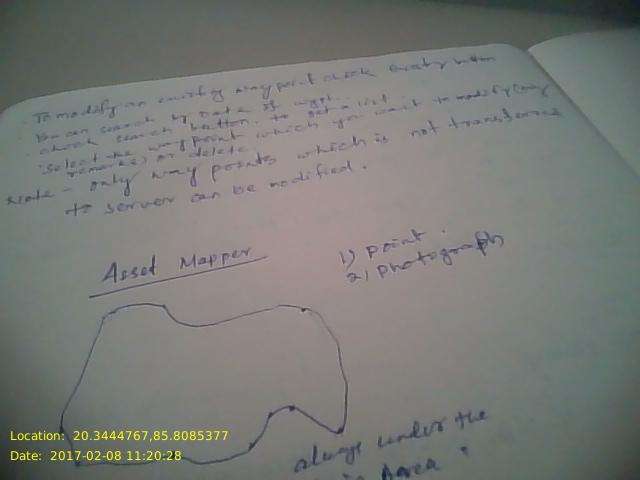 To modify an existing way point check existing button
You can search by date of wypt.
check search button. to get a list.
Select the way point which you want to modify (only
remarks) or delete.
Note - only way points which is not transferred
to server can be modified.
Asset Mapper
1) point.
2) photograph
always under the
Area "
Location: 20.3444767,85.8085377
Date: 2017-02-08 11:20:28